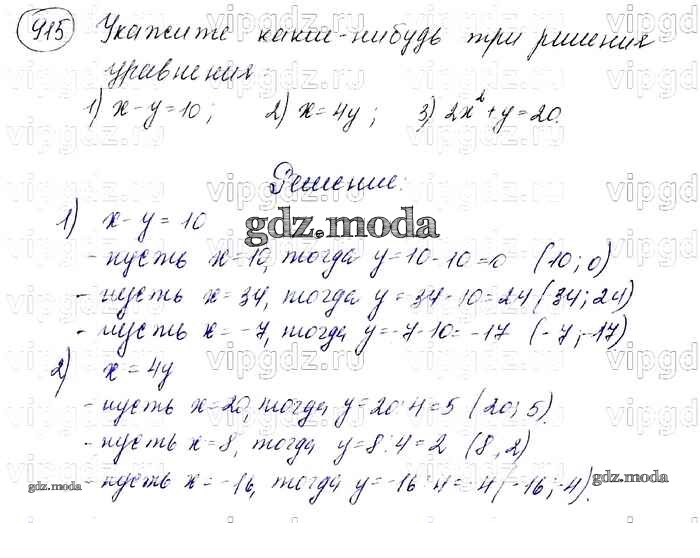 915 Укажите какие-нибудь три решения
уравнения:
1) x - y = 10; 2) x = 4y; 3) 2x² + y = 20.
Решение:
1) x - y = 10
gdz.moda
- пусть x = 10, тогда y = 10 - 10 = 0 (10; 0)
- пусть x = 34, тогда y = 34 - 10 = 24 (34; 24)
- пусть x = -7, тогда y = -7 - 10 = -17 (-7; -17)
2) x = 4y
- пусть x = 20, тогда y = 20 : 4 = 5 (20; 5).
- пусть x = 8, тогда y = 8 : 4 = 2 (8, 2)
- пусть x = -16, тогда y = -16 : 4 = -4 (-16; -4).
gdz.moda gdz.moda
vipgdz.ru